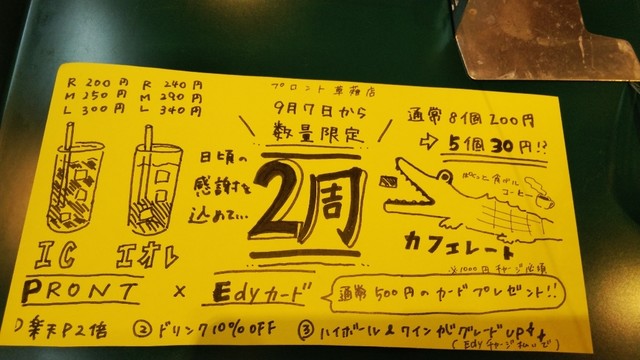 プロント草薙店
R 200円 R 240円
M 250円 M 290円
L 300円 L 340円
9月7日から
数量限定
通常 8個200円
⇨ 5個30円!?
日頃の
感謝を
込めて…
2周
パクッと食べル
コーヒー
カフェレート
※1000円チャージ必須
IC エオレ
PRONT × Edyカード
通常500円のカードプレゼント!!
① 楽天P2倍 ② ドリンク10%OFF ③ ハイボール&ワインがグレードUP
(Edyチャージ払いで)